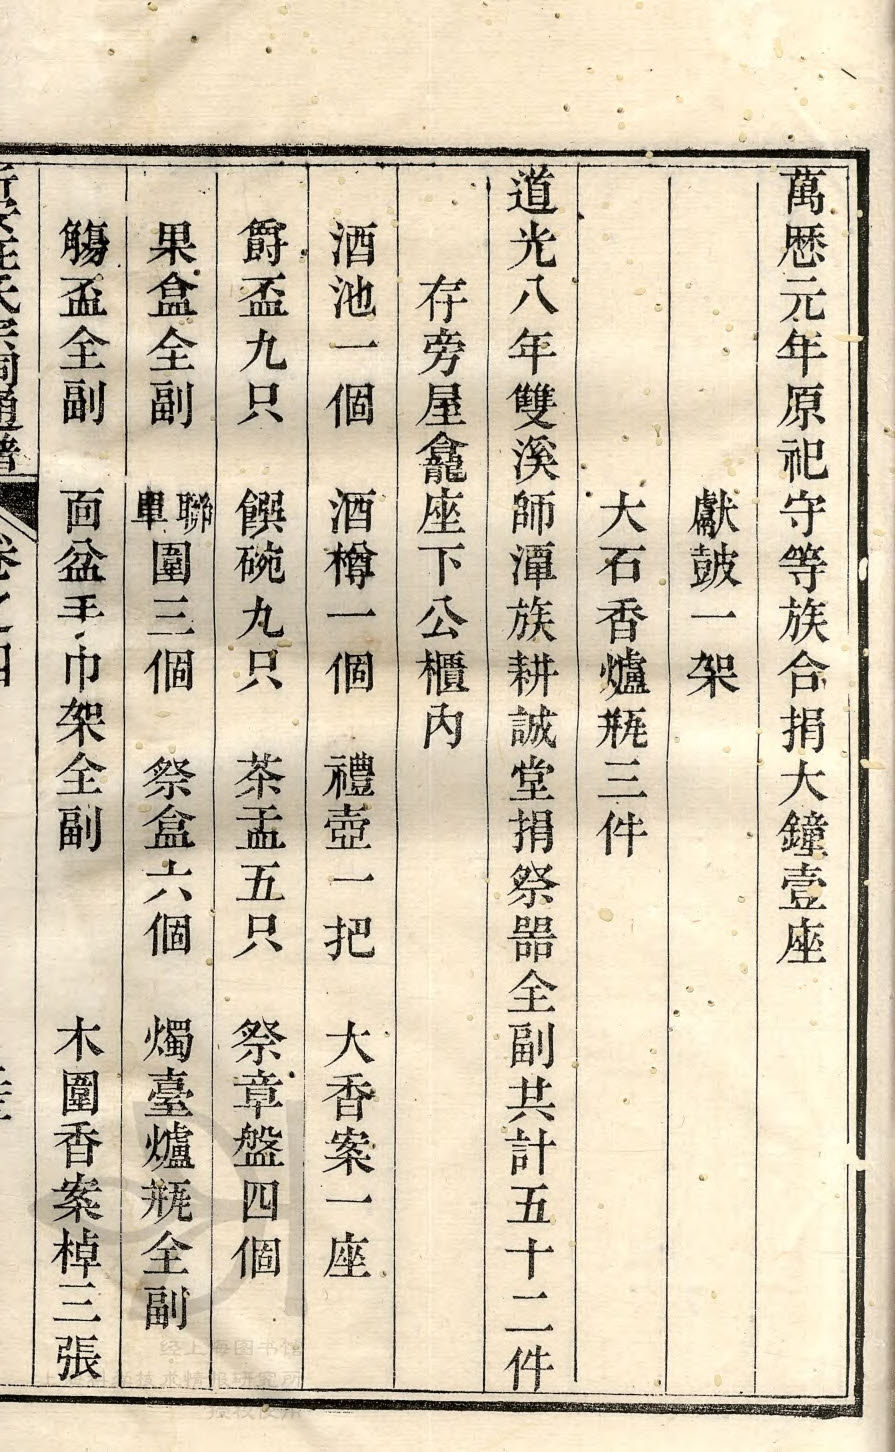 萬厯元年原祀守等族合捐大鐘壹座
獻鼓一架
大石香爐瓶三件
道光八年雙溪師潭族耕誠堂捐祭噐全副共計五十二件
存旁屋龕座下公櫃內
酒池一個 酒樽一個 禮壺一把 大香案一座
爵盃九只 饌碗九只 茶盂五只 祭章盤四個
果盒全副 聯單圍三個 祭盒六個 燭臺爐瓶全副
觴盃全副 面盆手巾架全副 木圍香案棹三張
氏宗祠通譜 卷之四
经上海图书馆
技术情报研究所